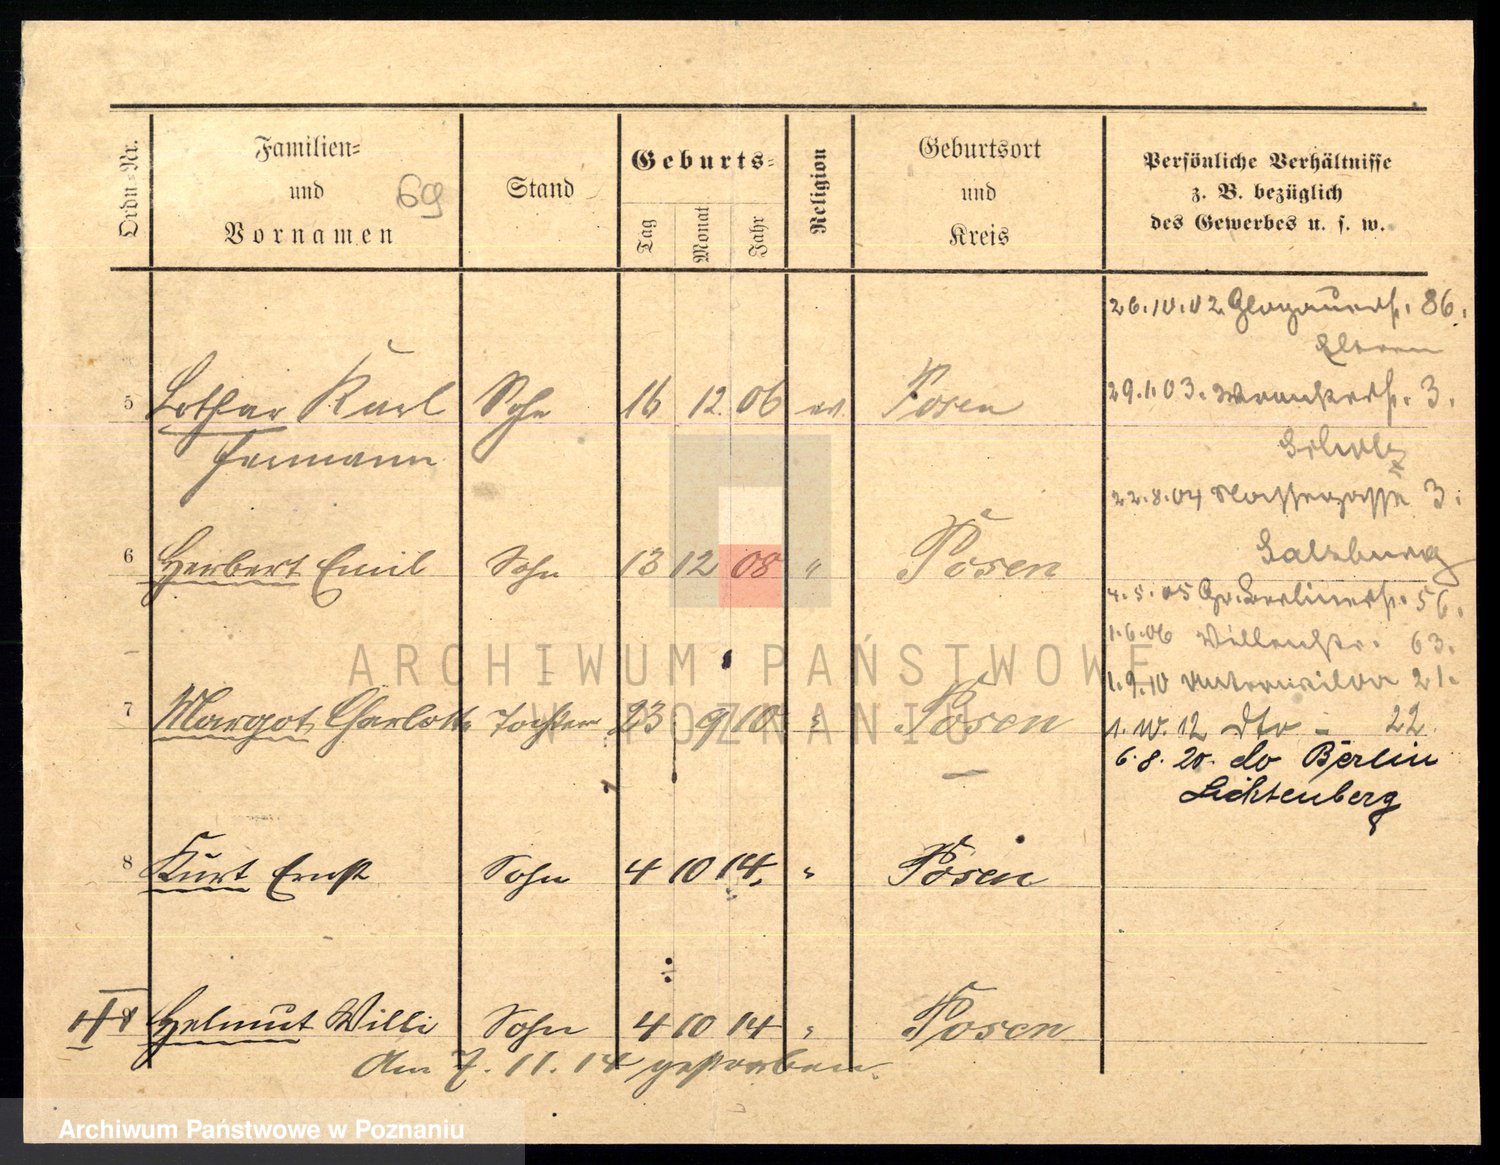 Ordn.-Nr.
Familien-
und
Vornamen
69
Stand
Geburts-
Tag
Monat
Jahr
Religion
Geburtsort
und
Kreis
Persönliche Verhältnisse
z. B. bezüglich
des Gewerbes u. s. w.
26.10.02 Glogauerstr. 86.
5 Lothar Karl Sohn 16 12 06 ev. Posen
Hermann
29.1.03. 3.
Scholz
22.8.04 3.
Salzburg
6 Herbert Emil Sohn 13 12 08 " Posen
4.5.05 Gr. Berlinerstr. 56.
1.6.06 Villenstr. 63.
1.9.10 21.
7 Margot Charlotte Tochter 23 9 10 " Posen
1.10.12 dto - 22
6.8.20. do Berlin
Lichtenberg
8 Kurt Ernst Sohn 4 10 14. " Posen
9 Helmut Willi Sohn 4 10 14 " Posen
Am 7.11.14 gestorben.
ARCHIWUM PAŃSTWOWE
W POZNANIU
Archiwum Państwowe w Poznaniu